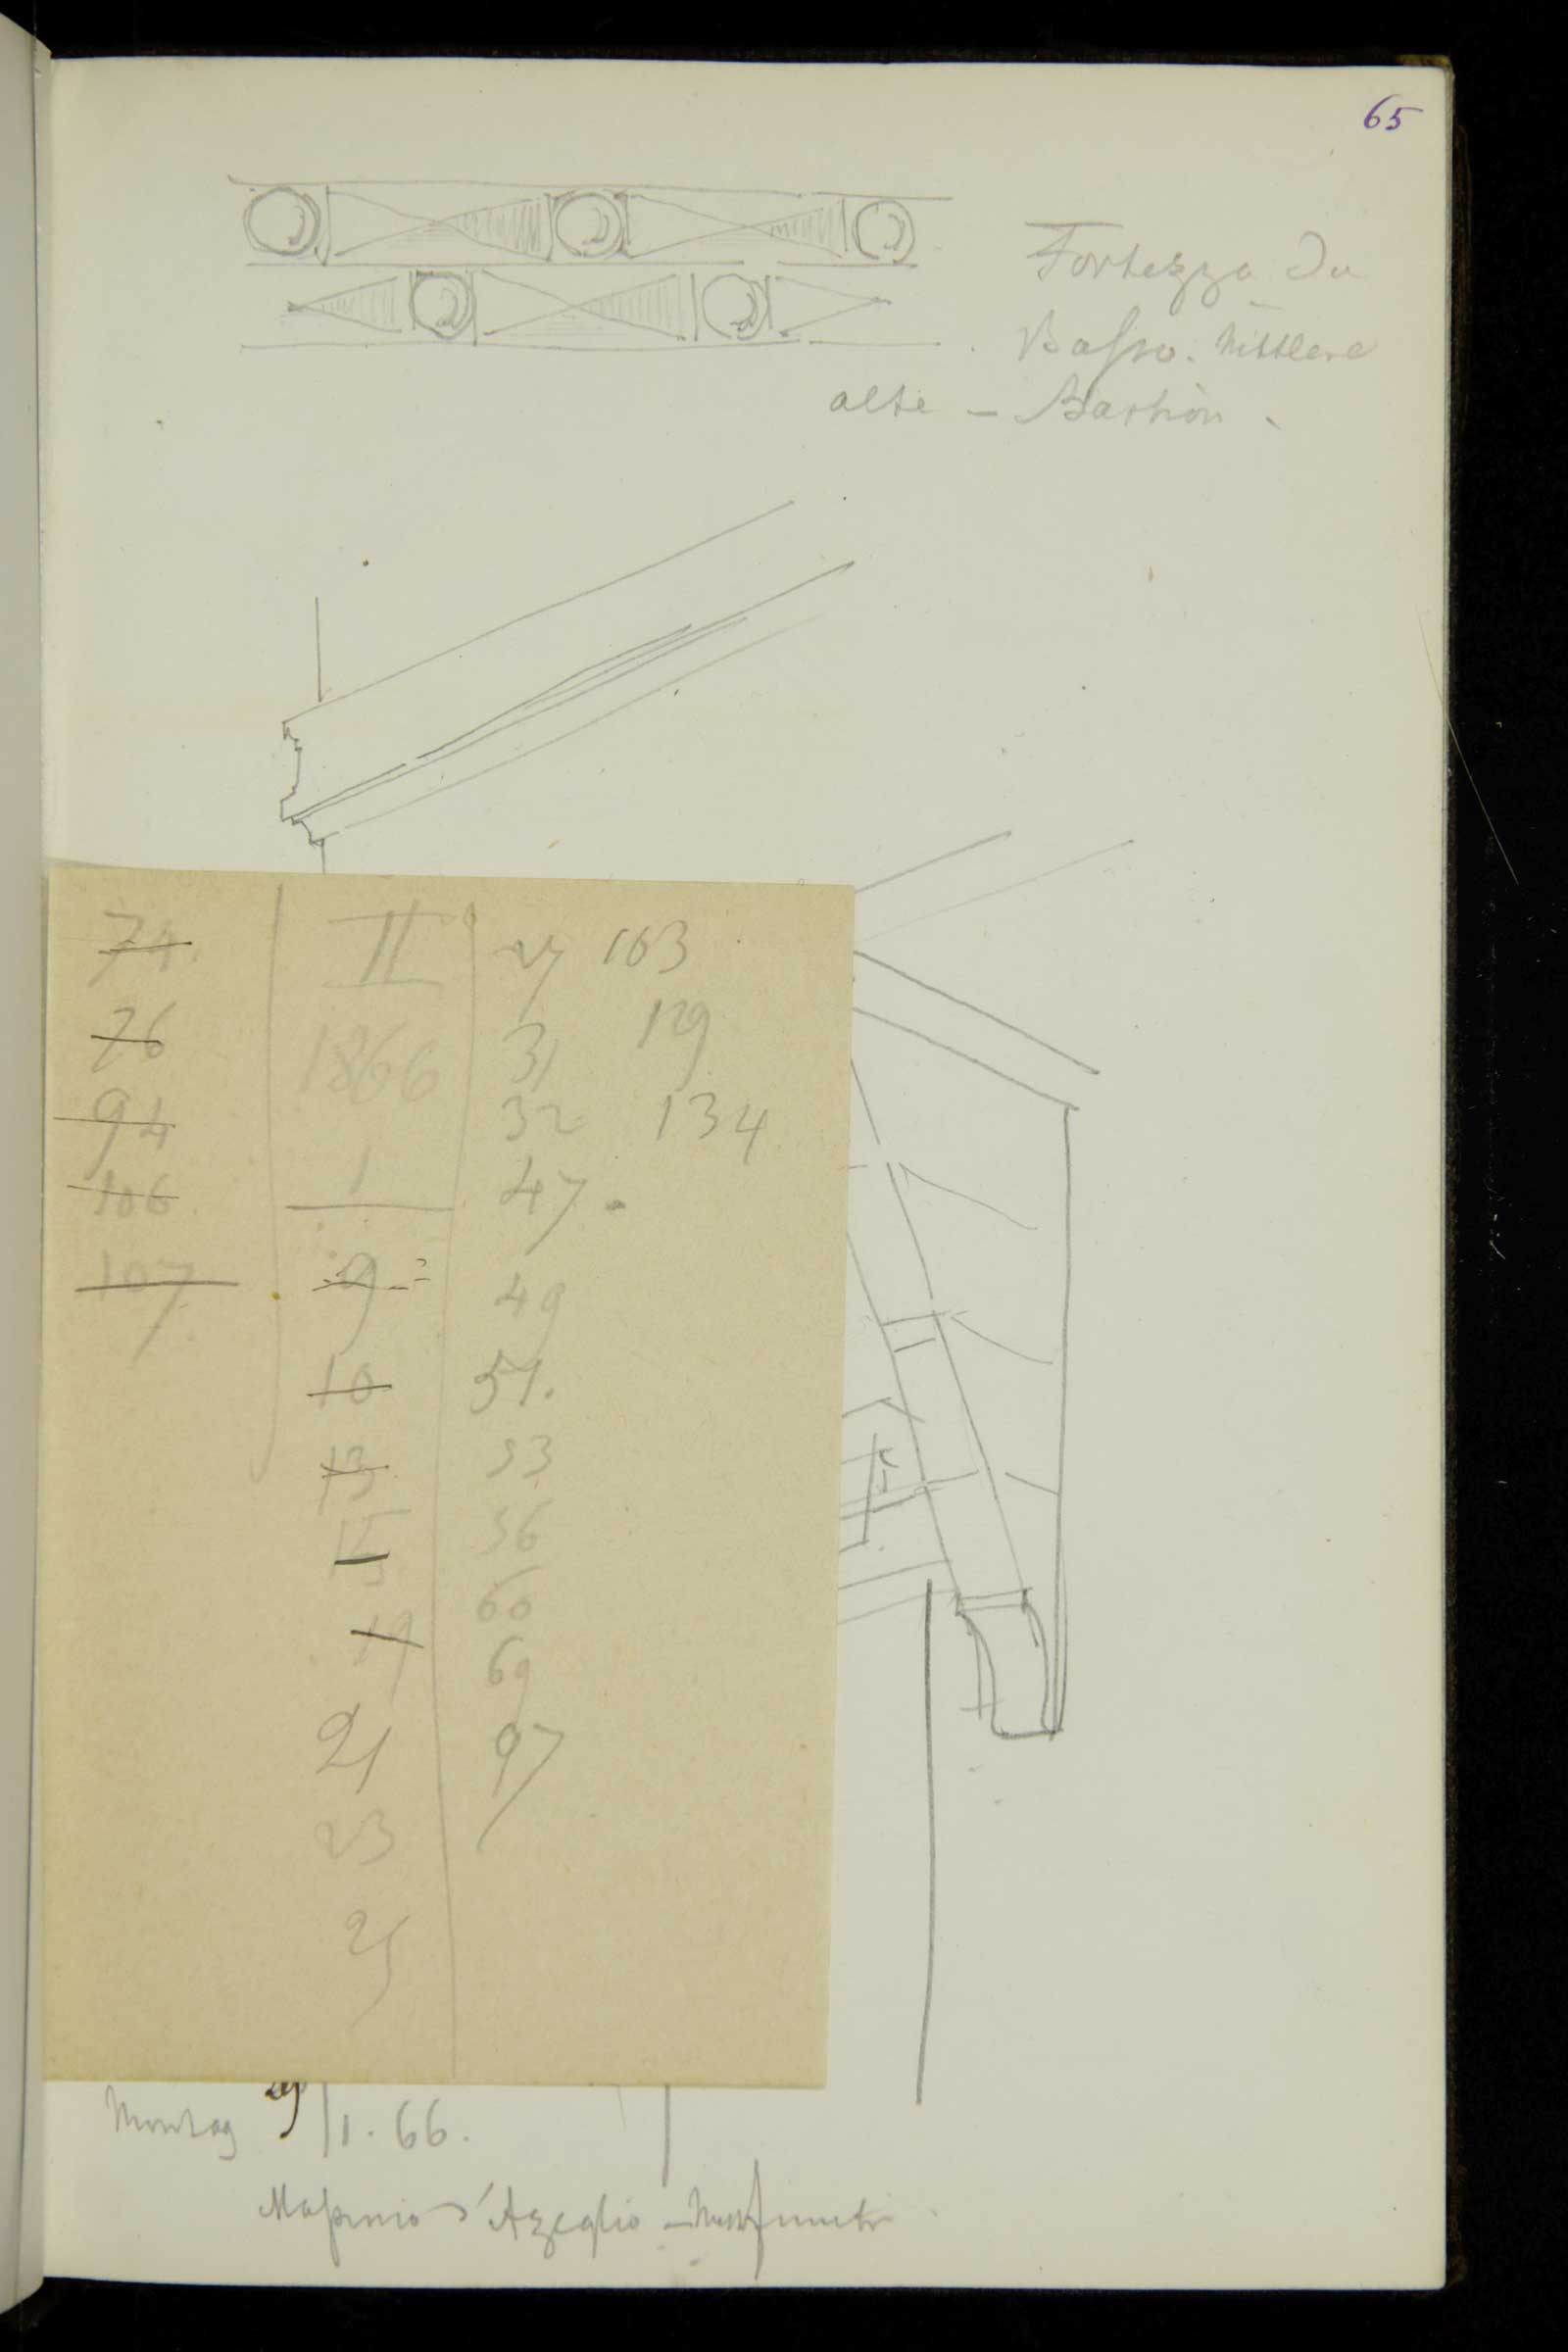 65
Fortezza da
Basso. Mittlere
alte — Bastion.
74.
76
94
106.
107
II
1866
1
9
10
13
15
19
21
23
25
27 103
31 129
32 134
47.
49
51.
53
56
60
69
97
Montag 29/1. 66.
Massimo d'Azeglio